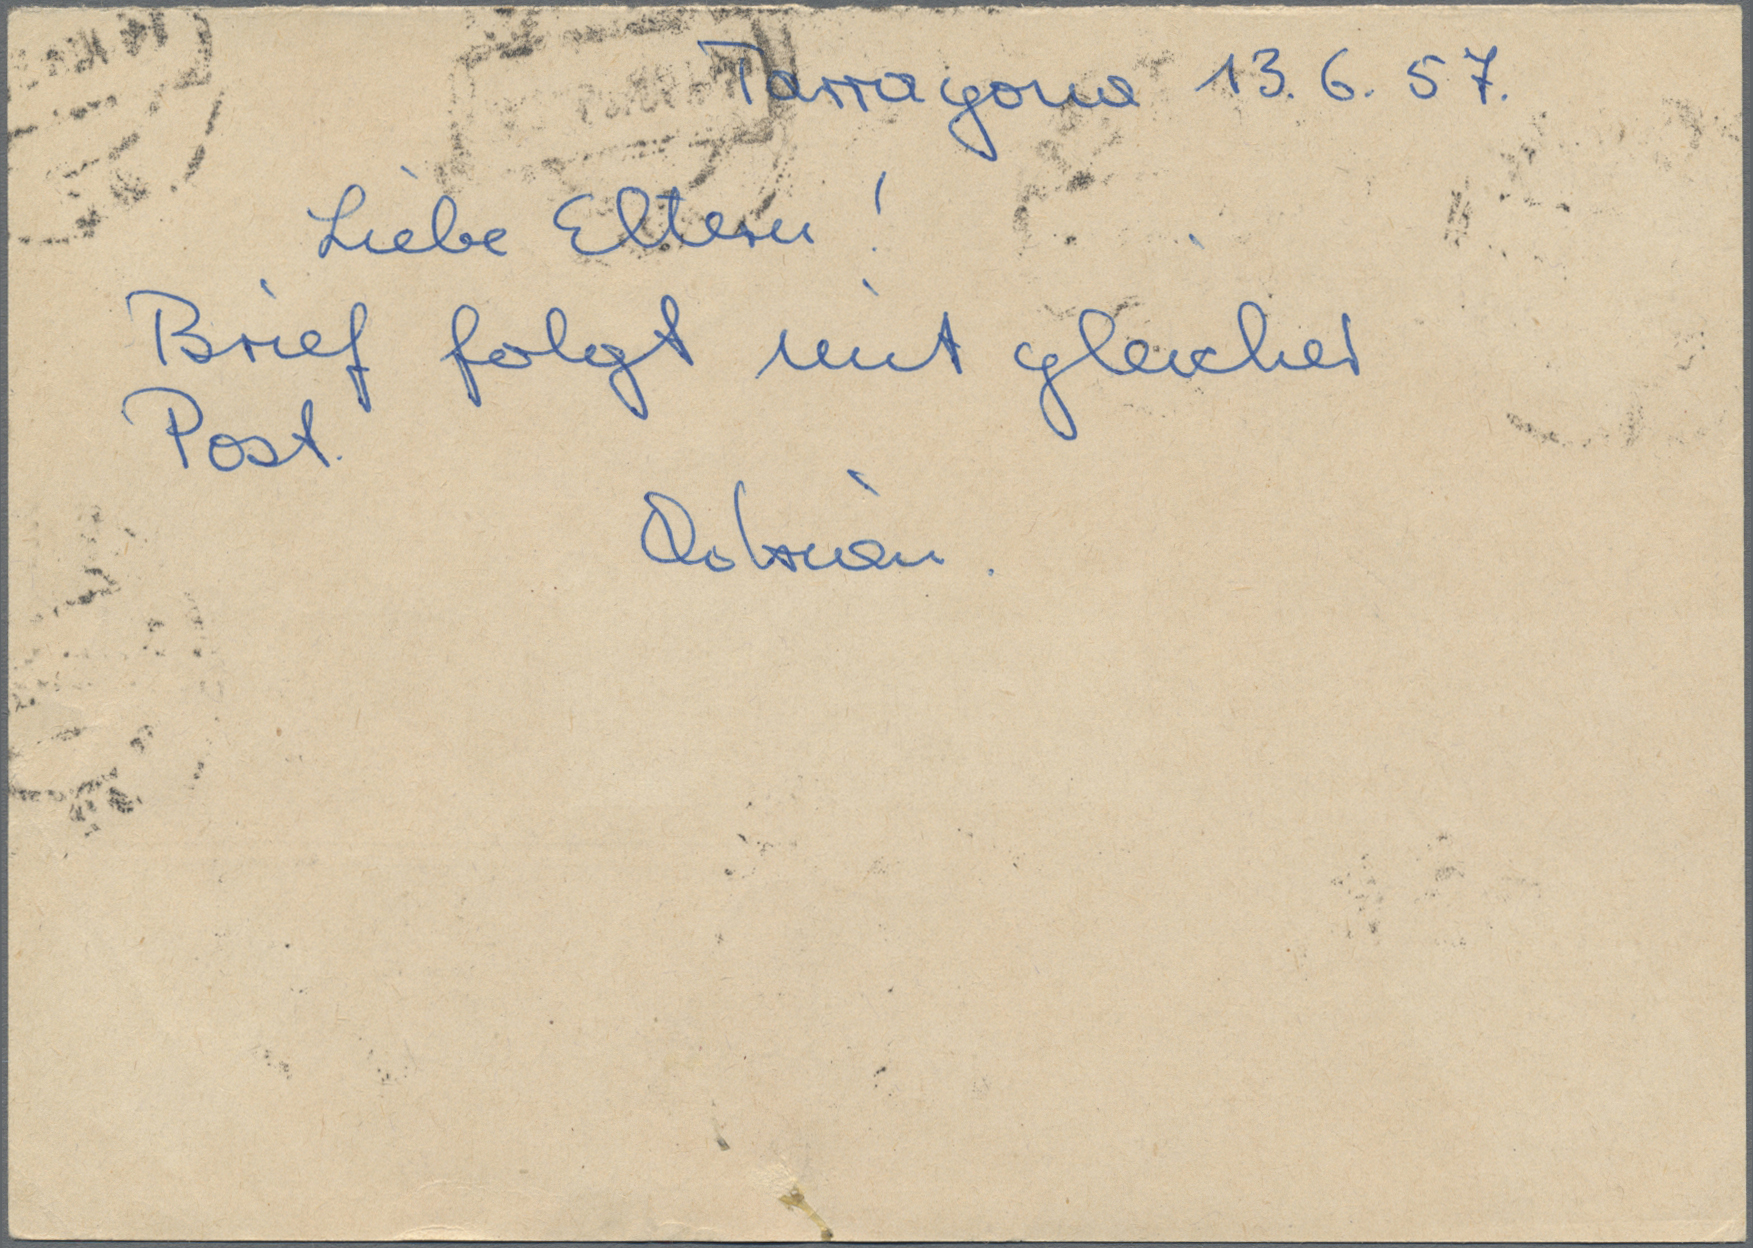 Tarragona 13.6.57.
Liebe Eltern!
Brief folgt mit gleicher
Post.
Adrian.